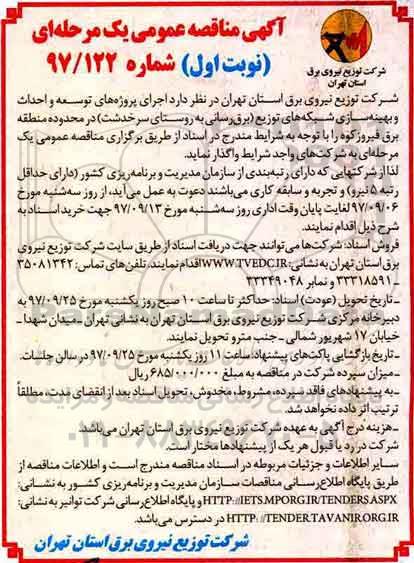 آگهی مناقصه عمومی یک مرحله‌ای
(نوبت اول) شماره ۹۷/۱۲۲
شرکت توزیع نیروی برق
استان تهران
شرکت توزیع نیروی برق استان تهران در نظر دارد اجرای پروژه‌های توسعه و احداث
و بهینه‌سازی شبکه‌های توزیع (برق‌رسانی به روستای سرخدشت) در محدوده منطقه
برق فیروزکوه را با توجه به شرایط مندرج در اسناد از طریق برگزاری مناقصه عمومی یک
مرحله‌ای به شرکت‌های واجد شرایط واگذار نماید.
لذا از شرکتهایی که دارای رتبه‌بندی از سازمان مدیریت و برنامه‌ریزی کشور (دارای حداقل
رتبه ۵ نیرو) و تجربه و سابقه کاری می‌باشند دعوت به عمل می‌آید، از روز سه‌شنبه مورخ
۹۷/۰۹/۰۶ لغایت پایان وقت اداری روز سه‌شنبه مورخ ۹۷/۰۹/۱۳ جهت خرید اسناد به
شرح ذیل اقدام نمایند.
فروش اسناد: شرکت‌ها می‌توانند جهت دریافت اسناد از طریق سایت شرکت توزیع نیروی
برق استان تهران به نشانی: WWW.TVEDC.IR اقدام نمایند. تلفن‌های تماس: ۳۵۰۸۱۳۴۲
ـ ۳۳۳۱۸۵۹۱ و نمابر ۳۳۳۴۹۰۴۸
ـ تاریخ تحویل (عودت) اسناد: حداکثر تا ساعت ۱۰ صبح روز یکشنبه مورخ ۹۷/۰۹/۲۵ به
دبیرخانه مرکزی شرکت توزیع نیروی برق استان تهران به نشانی تهران ـ میدان شهدا ـ
خیابان ۱۷ شهریور شمالی ـ جنب مترو تحویل نمایند.
ـ تاریخ بازگشایی پاکت‌های پیشنهاد: ساعت ۱۱ روز یکشنبه مورخ ۹۷/۰۹/۲۵ در سالن جلسات.
ـ میزان سپرده شرکت در مناقصه به مبلغ ۶۸۵/۰۰۰/۰۰۰ ریال
ـ به پیشنهادهای فاقد سپرده، مشروط، مخدوش، تحویل اسناد بعد از انقضای مدت، مطلقاً
ترتیب اثر داده نخواهد شد.
ـ هزینه درج آگهی به عهده شرکت توزیع نیروی برق استان تهران می‌باشد.
شرکت در رد یا قبول هر یک از پیشنهادها مختار است.
سایر اطلاعات و جزئیات مربوطه در اسناد مناقصه مندرج است و اطلاعات مناقصه از
طریق پایگاه اطلاع‌رسانی مناقصات سازمان مدیریت و برنامه‌ریزی کشور به نشانی:
HTTP://IETS.MPORG.IR/TENDERS.ASPX و پایگاه اطلاع‌رسانی شرکت توانیر به نشانی:
HTTP://TENDER.TAVANIR.ORG.IR در دسترس می‌باشد.
شرکت توزیع نیروی برق استان تهران